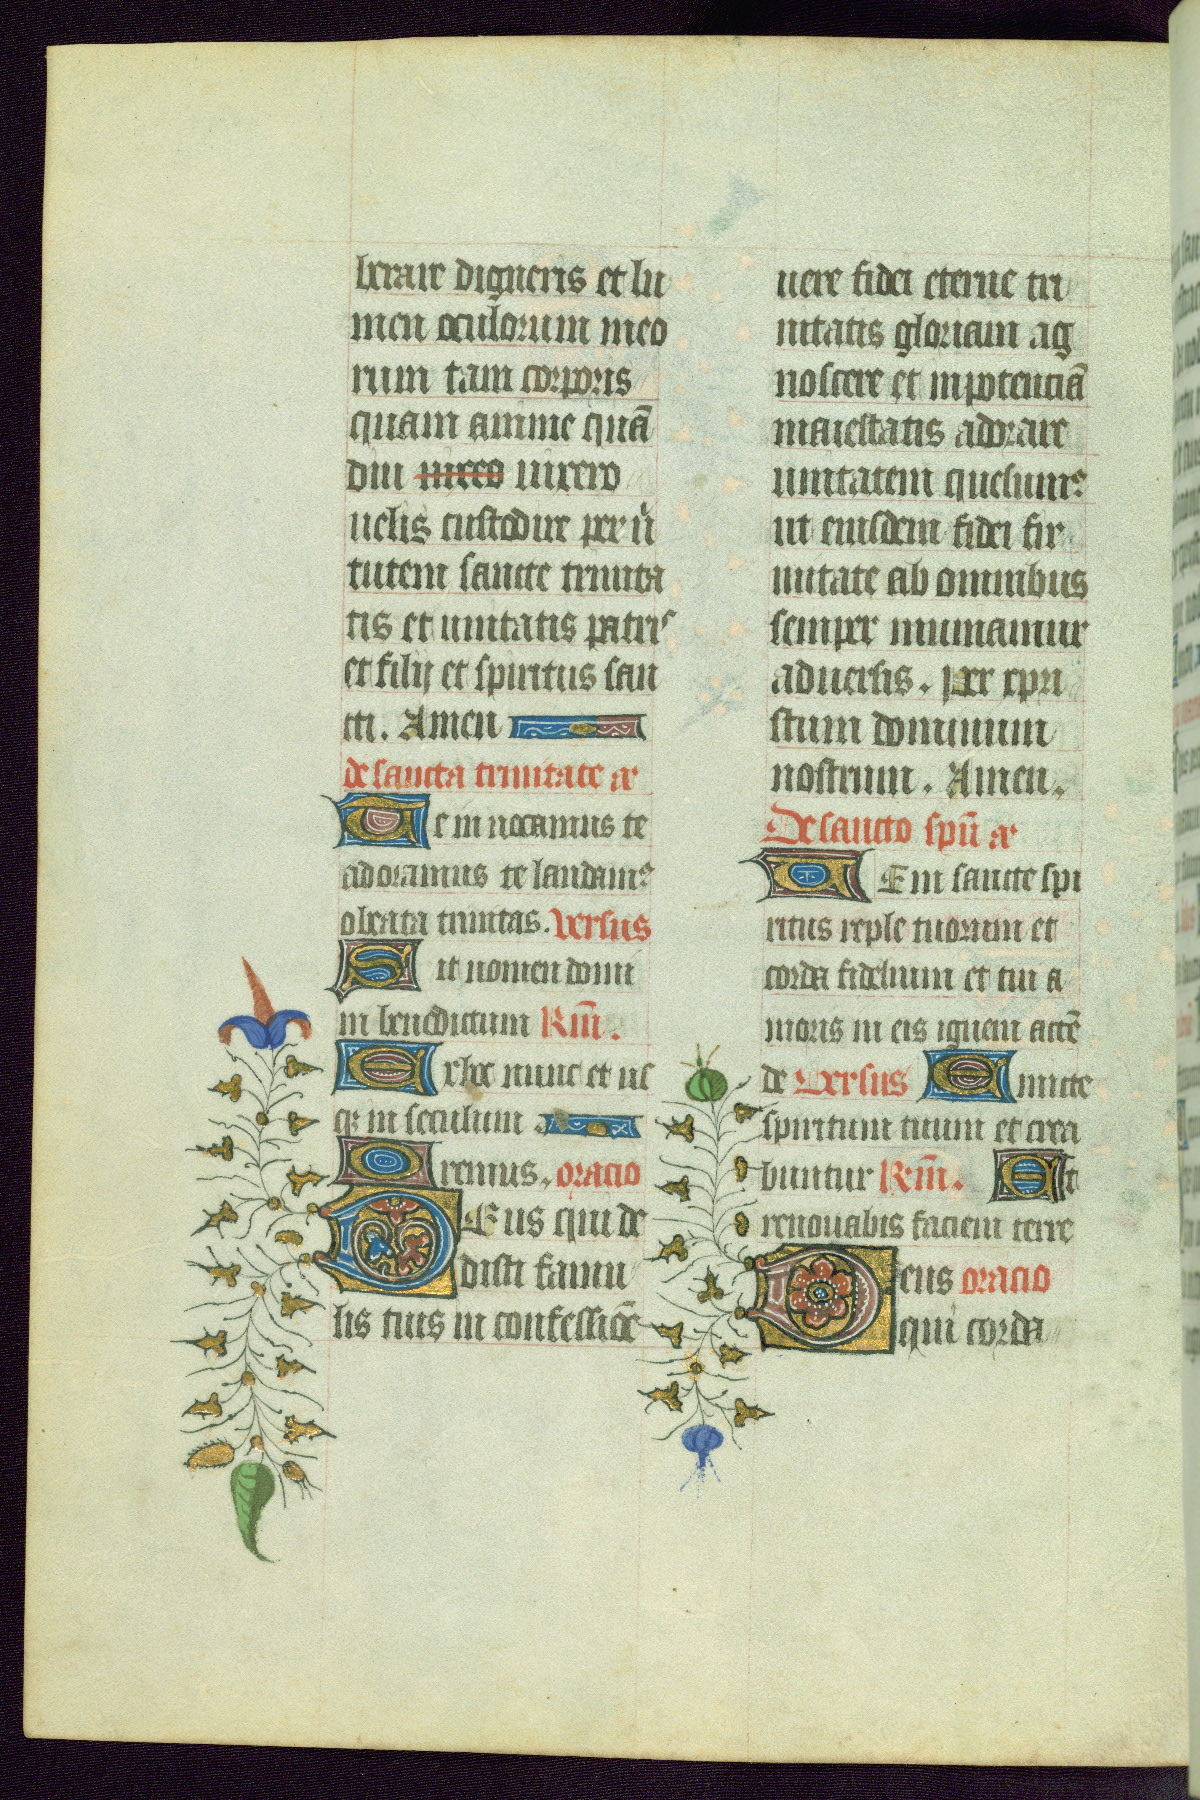 berare digneris et lu
men oculorum meo
rum tam corporis
quam anime quā
diu uixeo uixero
uelis custodire per uͥ
tutem sancte trinita
tis et unitatis patris
et filij et spiritus san
cti. Amen
de sancta trinitate ae
Te in uocamus te
adoramus te laudamꝰ
o beata trinitas. Versus
Sit nomen domi
ni benedictum Rm̄.
Ex hoc nunc et us
qꝫ in seculum.
Oremus. oracio
DEus qui de
disti famu
lis tuis in confessiōe
uere fidei eterne tri
nitatis gloriam ag
noscere et in potenciā
maiestatis adorare
unitatem quesumꝰ
ut eiusdem fidei fir
mitate ab omnibus
semper muniamur
aduersis. Per xpri
stum dominum
nostrum. Amen.
De sancto spū ae
UEni sancte spi
ritus reple tuorum et
corda fidelium et tui a
moris in eis ignem accē
de Versus Emitte
spiritum tuum et crea
buntur Rm̄. Et
renouabis faciem terre
Deus oracio
qui corda